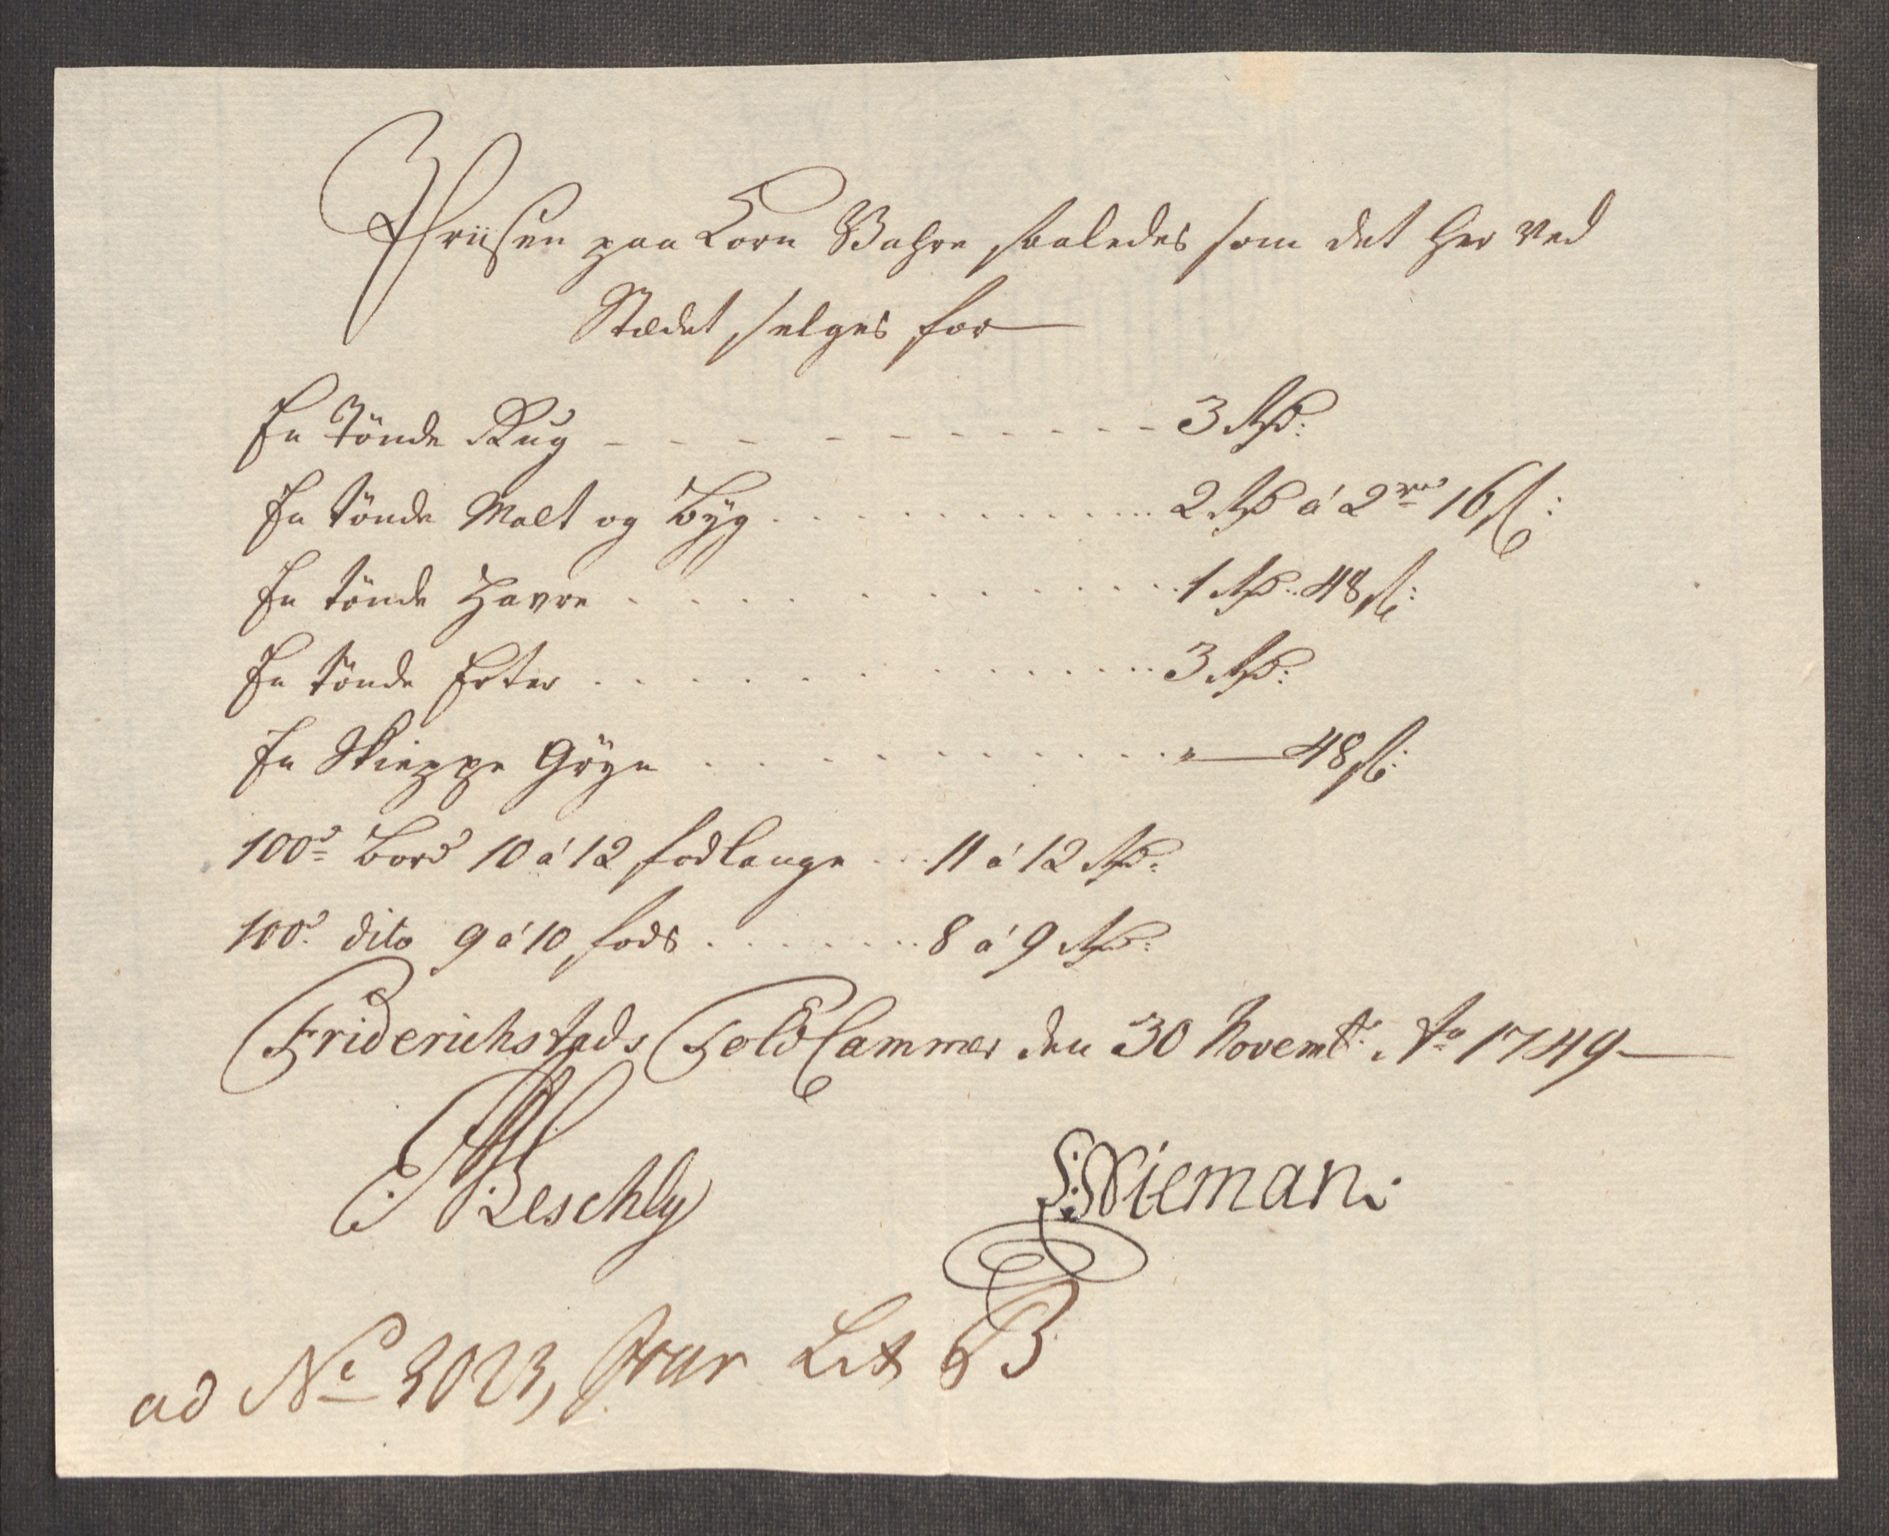 Phriisen paa Korn Vahre saaledes som det her ved
Stædet selges for
En Tönde Rug - - - - - - - - - - 3 Rd:
En tönde Malt og Byg . . . . . . . . . . 2 Rd á 2 rd 16 s:
En tönde Havre . . . . . . . . . . 1 Rd: 48 s:
En tönde Erter . . . . . . . . . . 3 Rd:
En Skieppe Gryn . . . . . . . . . . " — 48 s:
100d Bord 10 á 12 fodlange . . . 11 á 12 Rd:
100d dito 9 á 10 fods . . . . . . . . 8 á 9 Rd:
Friderichstads Told Cammer den 30 Novembr: Ao 1749
Beschly
S: Wieman:
ad No 3023, Lit B